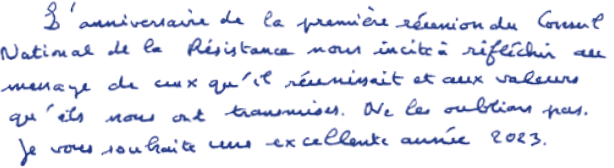 L'anniversaire de la première réunion du Conseil
National de la Résistance nous incite à réfléchir au
message de ceux qu'il réunissait et aux valeurs
qu'ils nous ont transmises. Ne les oublions pas.
Je vous souhaite une excellente année 2023.